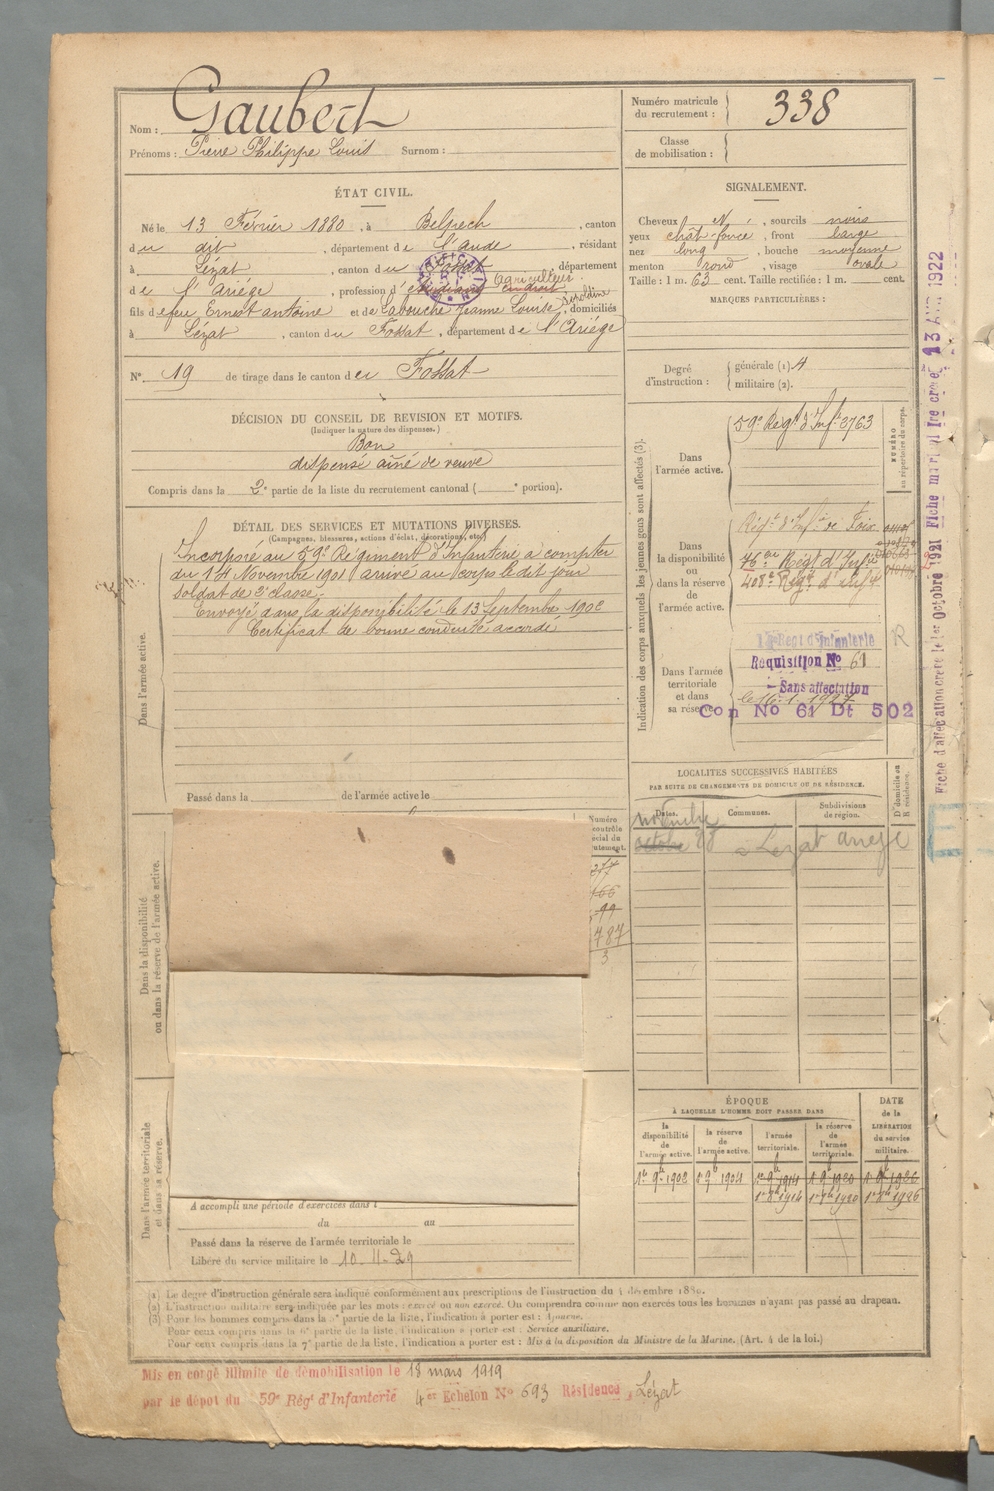 Nom : Gaubert
Prénoms : Pierre Philippe Louis Surnom :
Numéro matricule du recrutement : 338
Classe de mobilisation :
ÉTAT CIVIL.
Né le 13 Février 1880, à Belpech, canton
du dit, département de l'aude, résidant
à Lézat, canton du Fossat, département
de l'Ariége, profession d'étudiant en droit agriculteur
fils de feu Ernest antoine et de Labouche Jeanne Louise, domiciliés
à Lézat, canton du Fossat, département de l'Ariége
N° 19 de tirage dans le canton du Fossat
DÉCISION DU CONSEIL DE REVISION ET MOTIFS.
(Indiquer la nature des dispenses.)
Bon
dispensé aîné de veuve
Compris dans la 2e partie de la liste du recrutement cantonal ( e portion).
DÉTAIL DES SERVICES ET MUTATIONS DIVERSES.
(Campagnes, blessures, actions d'éclat, décorations, etc.)
Dans l'armée active.
Incorporé au 59e Régiment d'Infanterie à compter
du 14 Novembre 1901 arrivé au corps le dit jour
soldat de 2e classe.
Envoyé dans la disponibilité le 13 Septembre 1902
Certificat de bonne conduite accordé
Passé dans la de l'armée active le
Dans la disponibilité ou dans la réserve de l'armée active.
Dans l'armée territoriale et dans sa réserve.
A accompli une période d'exercices dans l
du au
Passé dans la réserve de l'armée territoriale le
Libéré du service militaire le 10-11-29
SIGNALEMENT.
Cheveux N, sourcils noirs
yeux chât foncé, front large
nez long, bouche moyenne
menton rond, visage ovale
Taille : 1 m. 63 cent. Taille rectifiée : 1 m. cent.
MARQUES PARTICULIÈRES :
Degré d'instruction : générale (1) 4
militaire (2).
Indication des corps auxquels les jeunes gens sont affectés (3).
Dans l'armée active.
59e Régt d'Inf. 3763
NUMÉRO au répertoire du corps.
Dans la disponibilité ou dans la réserve de l'armée active.
Régt d'Inf. de Foix
Régt d'Infrie
408e Régt d'Inf.
Dans l'armée territoriale et dans sa réserve.
Régt d'Infanterie
Réquisition No 61
Sans affectation
le 16.1.1927
Con No 61 Dt 502
R
LOCALITES SUCCESSIVES HABITÉES
PAR SUITE DE CHANGEMENTS DE DOMICILE OU DE RÉSIDENCE.
Dates. Communes. Subdivisions de région. D. domicile ou R. résidence.
novembre
octobre 28 Lézat ariege
Numéro
787
3
ÉPOQUE
À LAQUELLE L'HOMME DOIT PASSER DANS
la disponibilité de l'armée active. la réserve de l'armée active. l'armée territoriale. la réserve de l'armée territoriale. DATE de la LIBÉRATION du service militaire.
1902 1904 1914 1920 1926
1914 1920 1926
(1) Le degré d'instruction générale sera indiqué conformément aux prescriptions de l'instruction du 4 décembre 1889.
(2) L'instruction militaire sera indiquée par les mots : exercé ou non exercé. On comprendra comme non exercés tous les hommes n'ayant pas passé au drapeau.
(3) Pour les hommes compris dans la 5e partie de la liste, l'indication à porter est : Ajourné.
Pour ceux compris dans la 6e partie de la liste, l'indication à porter est : Service auxiliaire.
Pour ceux compris dans la 7e partie de la liste, l'indication à porter est : Mis à la disposition du Ministre de la Marine. (Art. 4 de la loi.)
Mis en congé illimité de démobilisation le 18 mars 1919
par le dépôt du 59e Régt d'Infanterie 4e Echelon No 693 Résidence, Lézat